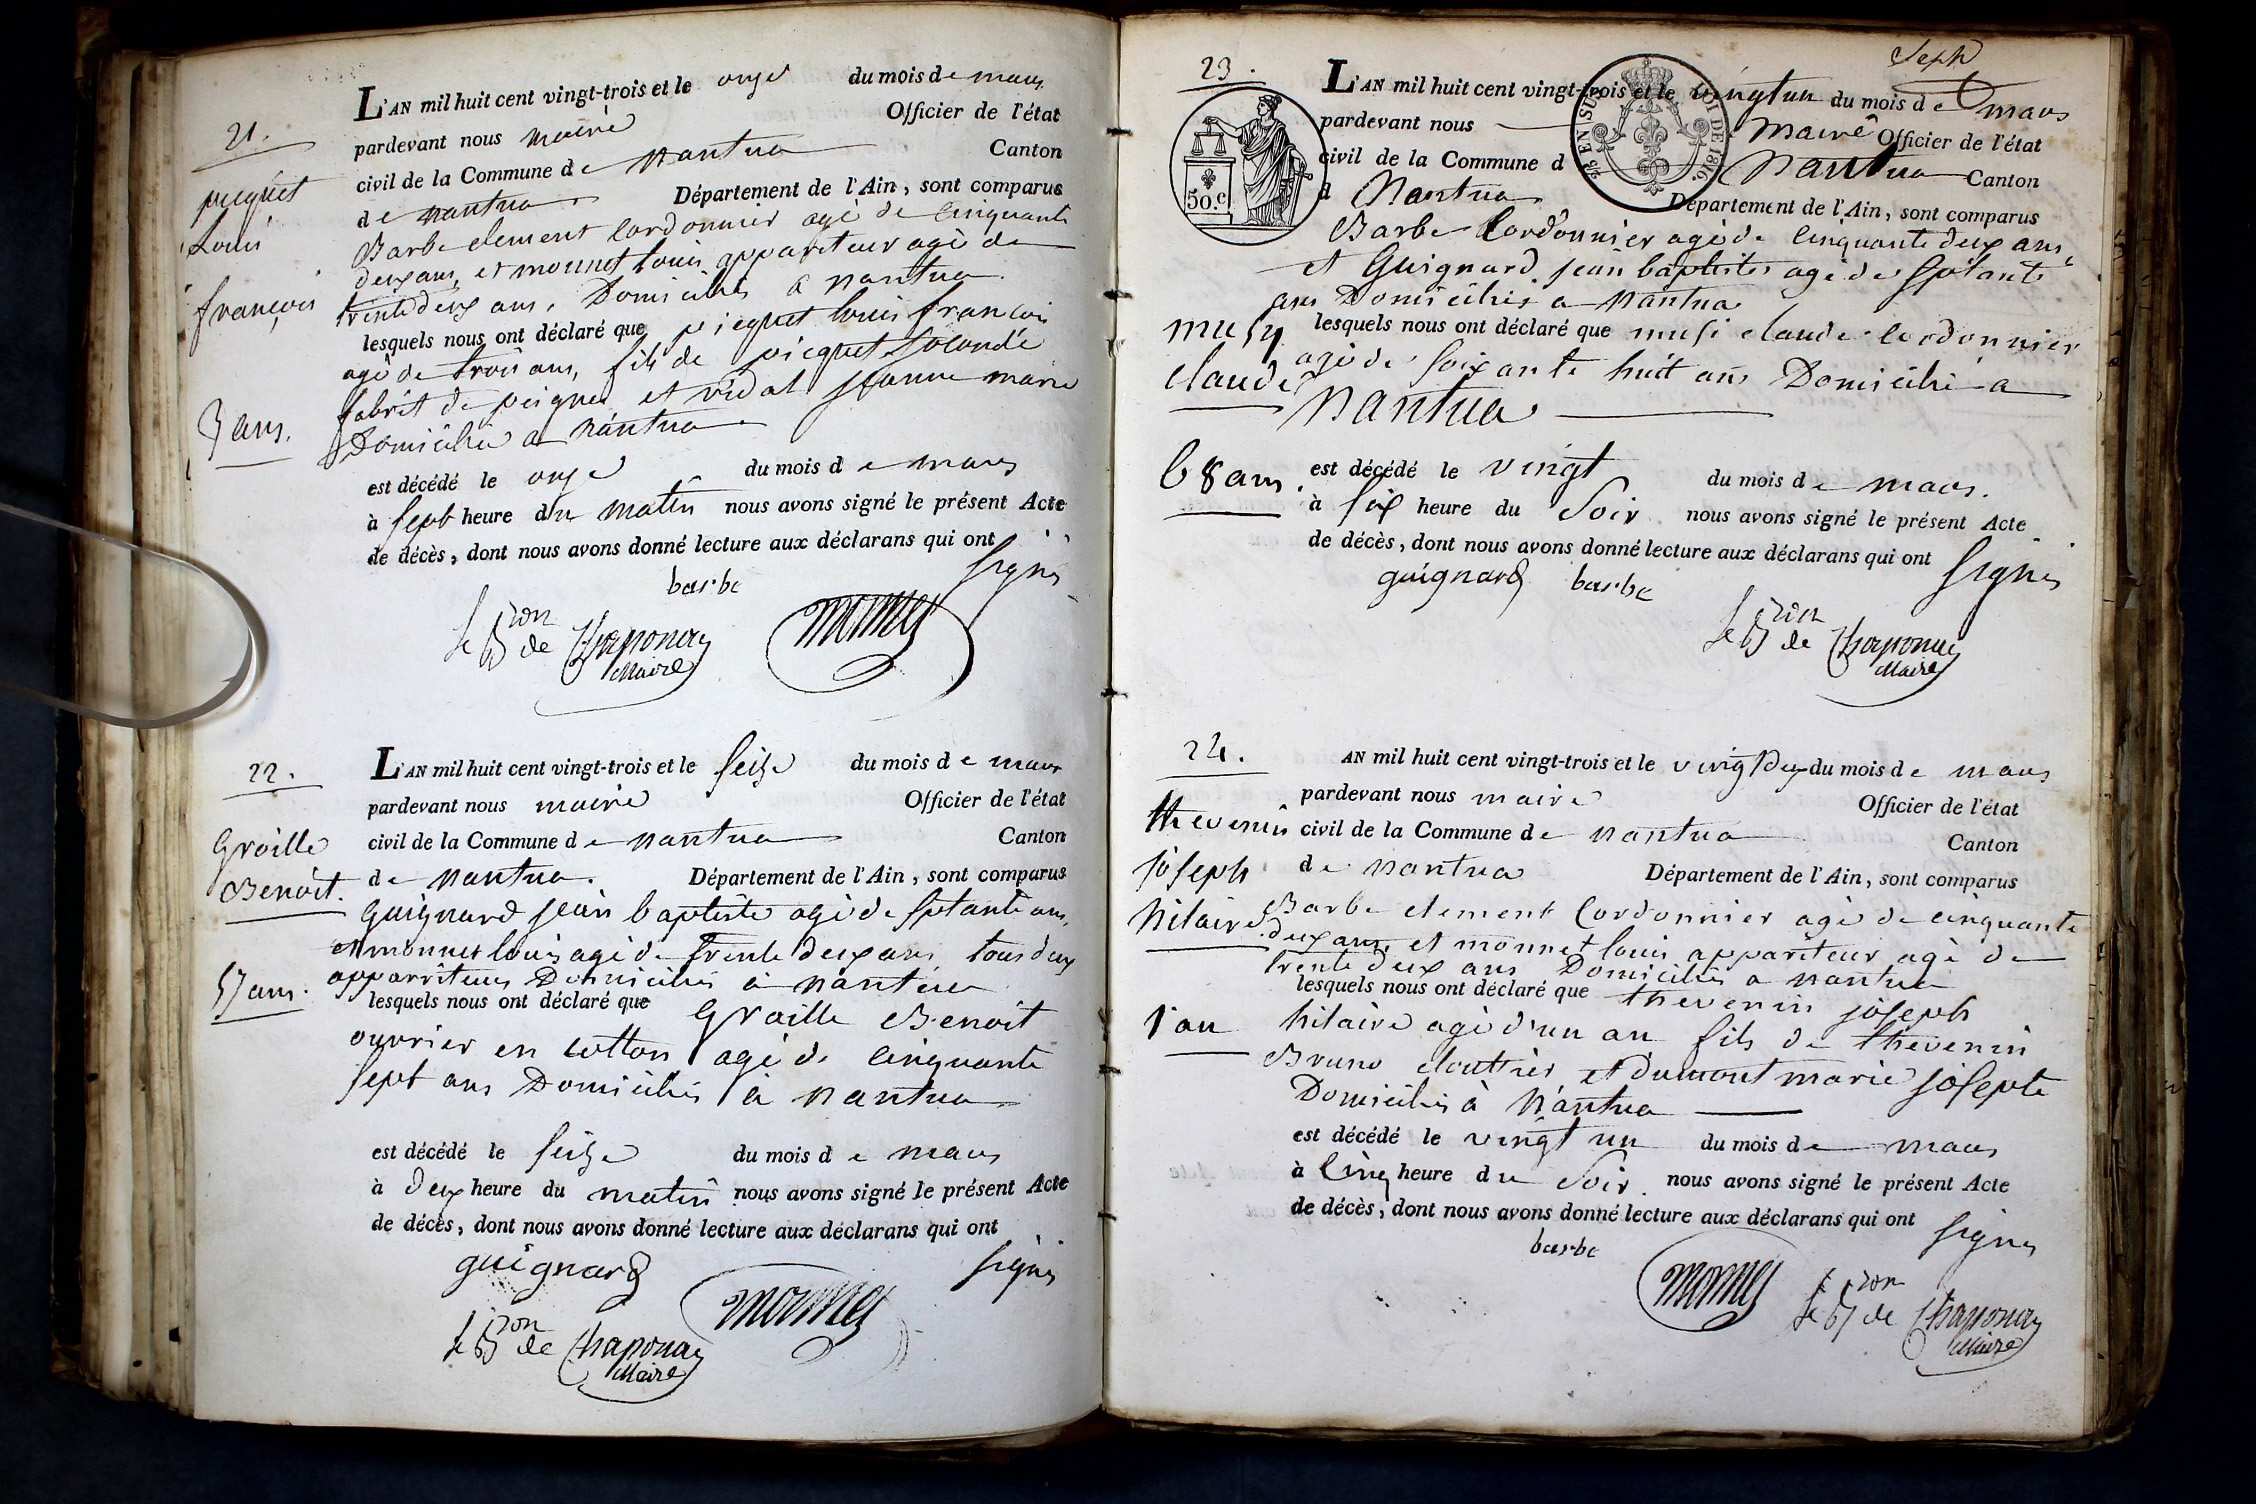 21.
L'AN mil huit cent vingt-trois et le onze du mois de mars
pardevant nous maire Officier de l'état
civil de la Commune de nantua Canton
de nantua. Département de l'Ain, sont comparus
Barbe clement Cordonnier agé de cinquante
deux ans, et monnet louis appariteur agé de
trente deux ans, Domiciliés a nantua.
lesquels nous ont déclaré que picquet louis françois
agé de trois ans, fils de picquet
fabrict de peignes et vidal jeanne marie
Domicilié a nantua
picquet
Louis
françois
3 ans.
est décédé le onze du mois de mars
à sept heure du matin nous avons signé le présent Acte
de décès, dont nous avons donné lecture aux déclarans qui ont signés
barbe
le Bron de Chaponay monnet
Maire
22.
L'AN mil huit cent vingt-trois et le seize du mois de mars
pardevant nous maire Officier de l'état
civil de la Commune de nantua Canton
de nantua. Département de l'Ain, sont comparus
Guignard jean baptiste agé de septante ans,
et monnet louis agé de trente deux ans tous deux
apparriteurs Domiciliés à nantua
lesquels nous ont déclaré que Groille Benoit
ouvrier en cotton agé de cinquante
sept ans Domicilié à nantua
Groille
Benoit.
57 ans.
est décédé le seize du mois de mars
à deux heure du matin nous avons signé le présent Acte
de décès, dont nous avons donné lecture aux déclarans qui ont
guignard signés
le Bron de Chaponay monnet
Maire
23.
L'AN mil huit cent vingt-trois et le vingt un du mois de mars
pardevant nous maire Officier de l'état
civil de la Commune d Nantua Canton
d Nantua Département de l'Ain, sont comparus
Barbe Cordonnier agé de cinquante deux ans,
et Guignard jean baptiste agé de septante
ans Domiciliés a nantua
lesquels nous ont déclaré que musi claude cordonnier
agé de soixante huit ans Domicilié a
Nantua
50.c
LOI DE 1816.
musy
claude
68 ans.
est décédé le vingt du mois de mars.
à six heure du Soir nous avons signé le présent Acte
de décès, dont nous avons donné lecture aux déclarans qui ont signés
guignard barbe
le Bron de Chaponay
Maire
24.
AN mil huit cent vingt-trois et le vingt deux du mois de mars
pardevant nous maire Officier de l'état
civil de la Commune de nantua Canton
de nantua Département de l'Ain, sont comparus
Barbe clement Cordonnier agé de cinquante
deux ans, et monnet louis appariteur agé de
trente deux ans Domiciliés a nantua
lesquels nous ont déclaré que thevenin joseph
hilaire agé d'un an fils de thevenin
Bruno cloutier et Dumont marie josepte
Domiciliés à Nantua
thevenin
joseph
hilaire
1 an
est décédé le vingt un du mois de mars
à cinq heure du Soir nous avons signé le présent Acte
de décès, dont nous avons donné lecture aux déclarans qui ont signés
barbe
monnet le Bron de Chaponay
Maire